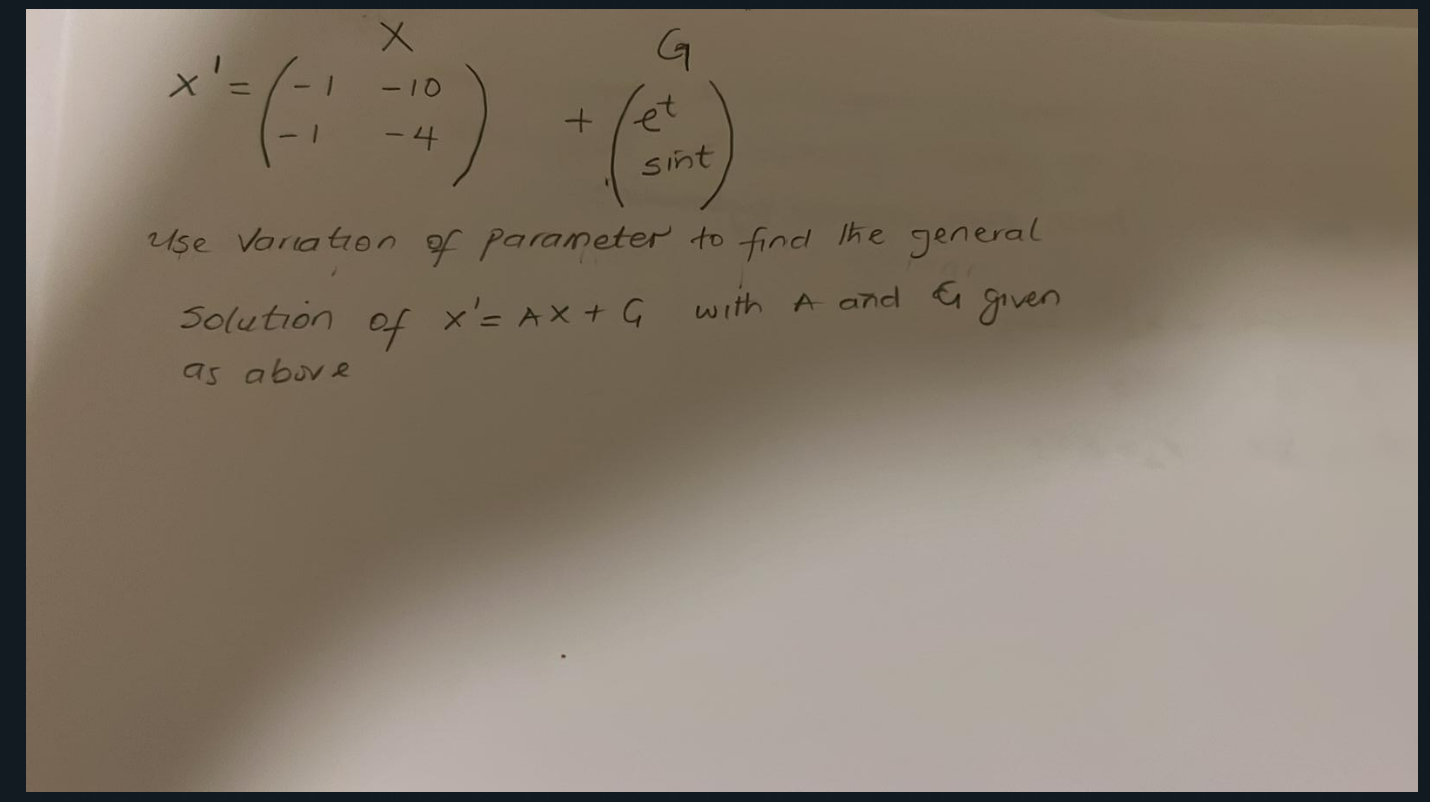 X G
x' = ( -1 -10 + ( e^t
-1 -4 ) sint )
Use Variation of parameter to find the general
Solution of x' = AX + G with A and G given
as above